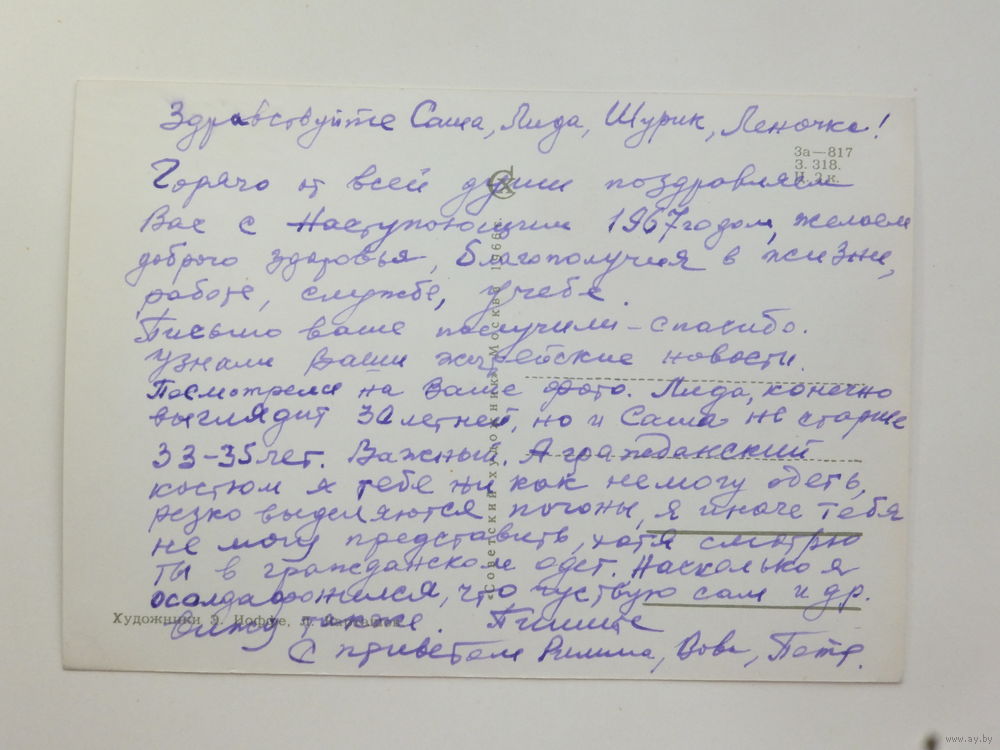 Здравствуйте Саша, Лида, Шурик, Леночка!
За—817
З. 318.
Ц. 3 к.
Горячо от всей души поздравляем
Вас с Наступающим 1967 годом, желаем
доброго здоровья, благополучия в жизни,
работе, службе, учебе.
Письмо ваше получили – спасибо.
Узнали Ваши житейские новости.
Посмотрели на Ваше фото. Лида, конечно
выглядит 30 летней, но и Саша не старше
33–35 лет. Важный. А гражданский
костюм я тебе ни как не могу одеть,
резко выделяются погоны, я иначе тебя
не могу представить, хотя смотрю
ты в гражданском одет. Насколько я
осолдафонился, что чуствую сам и др.
вижу также. Пишите
С приветом Римма, Вова, Петр.
Советский художник. Москва 1966 г.
Художники Э. Иоффе, Л.
www.ay.by